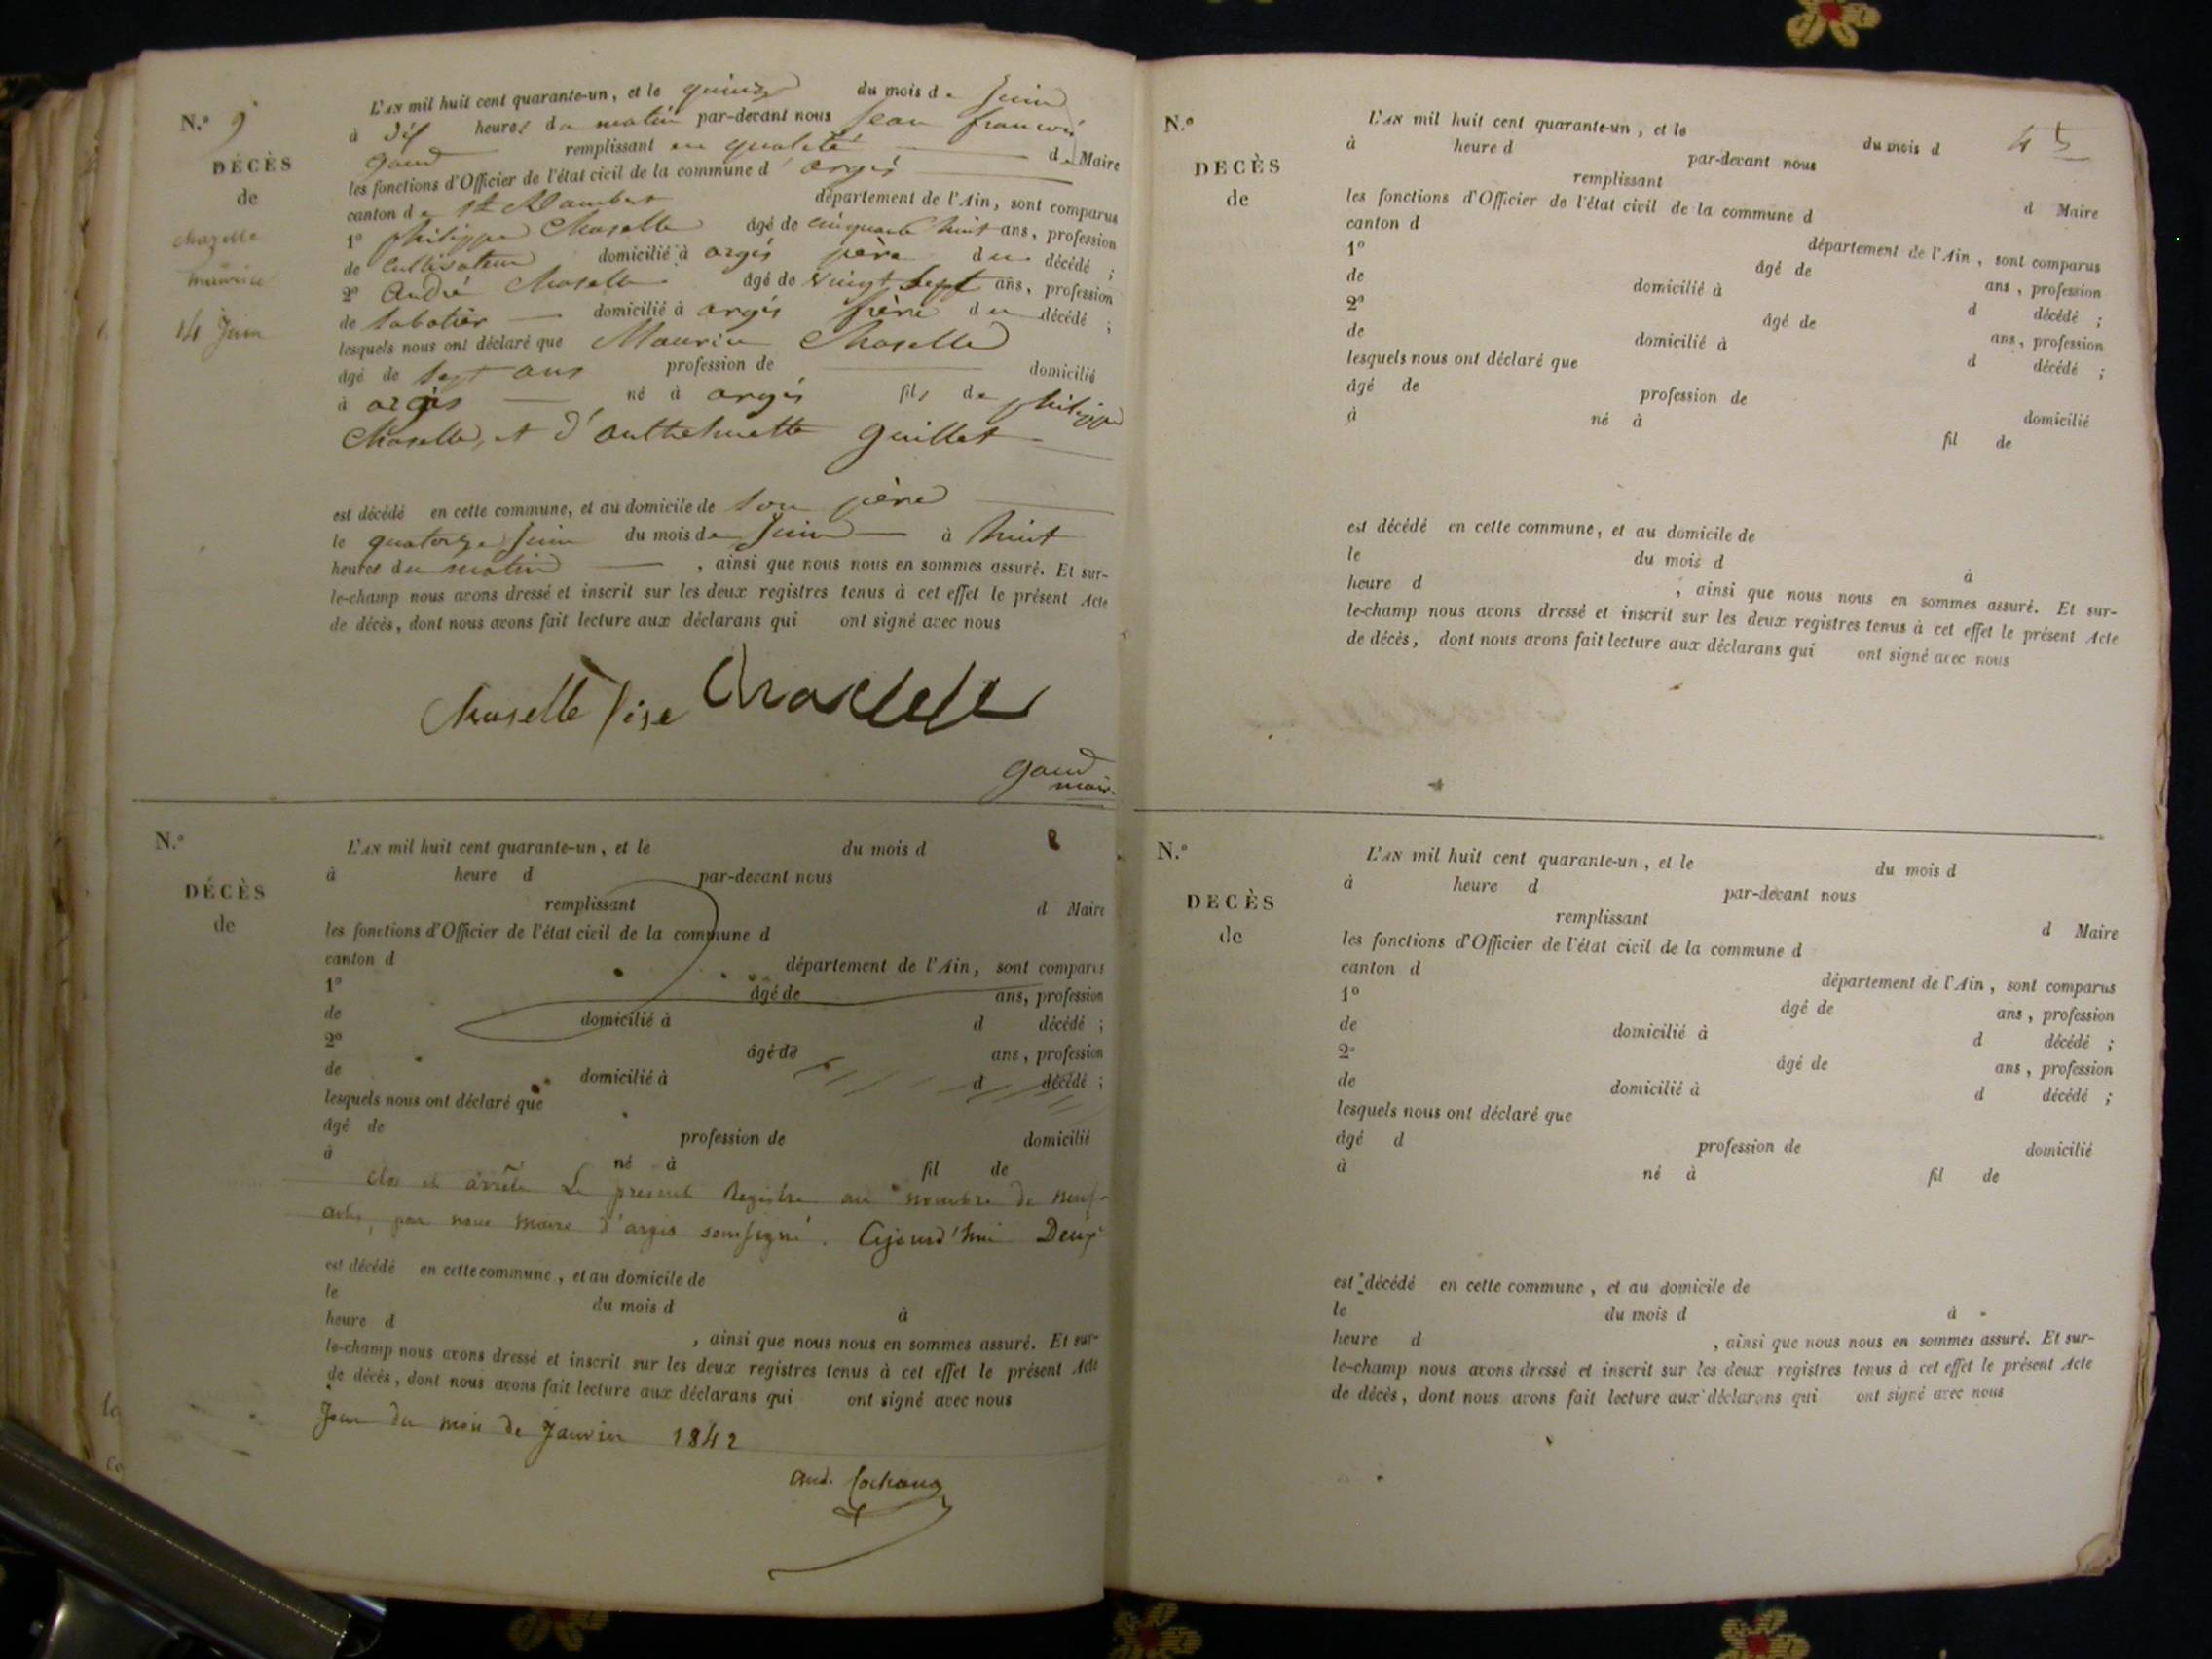 N.º 9
DÉCÈS
de
chazelle
maurice
14 Juin
L'AN mil huit cent quarante-un, et le quinze du mois de Juin
à dix heures du matin par-devant nous Jean françois
gaud remplissant en qualité de Maire
les fonctions d'Officier de l'état civil de la commune d'argis
canton de St Rambert département de l'Ain, sont comparus
1º philippe Chaselle âgé de cinquante huit ans, profession
de Cultivateur domicilié à argis père du décédé ;
2º André Chaselle âgé de vingt sept ans, profession
de sabotier domicilié à argis frère du décédé ;
lesquels nous ont déclaré que Maurice Chaselle
âgé de sept ans profession de domicilié
à argis né à argis fils de philippe
Chaselle, et d'anthelmette guillet
est décédé en cette commune, et au domicile de son père
le quatorze Juin du mois de Juin à huit
heures du matin , ainsi que nous nous en sommes assuré. Et sur-
le-champ nous avons dressé et inscrit sur les deux registres tenus à cet effet le présent Acte
de décès, dont nous avons fait lecture aux déclarans qui ont signé avec nous
Chaselle père Chaselle
gaud
maire
N.º
DÉCÈS
de
L'AN mil huit cent quarante-un, et le du mois d
à heure d par-devant nous
remplissant d Maire
les fonctions d'Officier de l'état civil de la commune d
canton d département de l'Ain, sont comparus
1º âgé de ans, profession
de domicilié à d décédé ;
2º âgé de ans, profession
de domicilié à d décédé ;
lesquels nous ont déclaré que
âgé de profession de domicilié
à né à fil de
Clos et arrêté Le present Registre au nombre de neuf
actes, par nous maire d'argis soussigné. Aujourd'hui Deux
est décédé en cette commune, et au domicile de
le du mois d à
heure d , ainsi que nous nous en sommes assuré. Et sur-
le-champ nous avons dressé et inscrit sur les deux registres tenus à cet effet le présent Acte
de décès, dont nous avons fait lecture aux déclarans qui ont signé avec nous
Jour du mois de Janvier 1842
And.
N.º
DECÈS
de
45
L'AN mil huit cent quarante-un, et le du mois d
à heure d par-devant nous
remplissant d Maire
les fonctions d'Officier de l'état civil de la commune d
canton d département de l'Ain, sont comparus
1º âgé de ans, profession
de domicilié à d décédé ;
2º âgé de ans, profession
de domicilié à d décédé ;
lesquels nous ont déclaré que
âgé de profession de domicilié
à né à fil de
est décédé en cette commune, et au domicile de
le du mois d à
heure d , ainsi que nous nous en sommes assuré. Et sur-
le-champ nous avons dressé et inscrit sur les deux registres tenus à cet effet le présent Acte
de décès, dont nous avons fait lecture aux déclarans qui ont signé avec nous
N.º
DECÈS
de
L'AN mil huit cent quarante-un, et le du mois d
à heure d par-devant nous
remplissant d Maire
les fonctions d'Officier de l'état civil de la commune d
canton d département de l'Ain, sont comparus
1º âgé de ans, profession
de domicilié à d décédé ;
2º âgé de ans, profession
de domicilié à d décédé ;
lesquels nous ont déclaré que
âgé d profession de domicilié
à né à fil de
est décédé en cette commune, et au domicile de
le du mois d à
heure d , ainsi que nous nous en sommes assuré. Et sur-
le-champ nous avons dressé et inscrit sur les deux registres tenus à cet effet le présent Acte
de décès, dont nous avons fait lecture aux déclarans qui ont signé avec nous